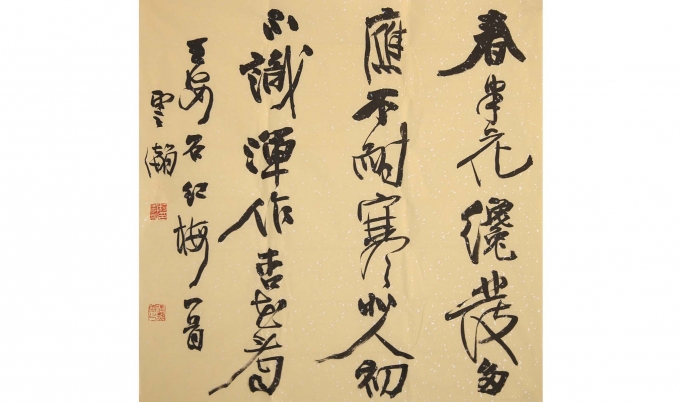 春半花纔發多
應不耐寒北人初
不識渾作杏花看
王安石紅梅一首
雲瀚